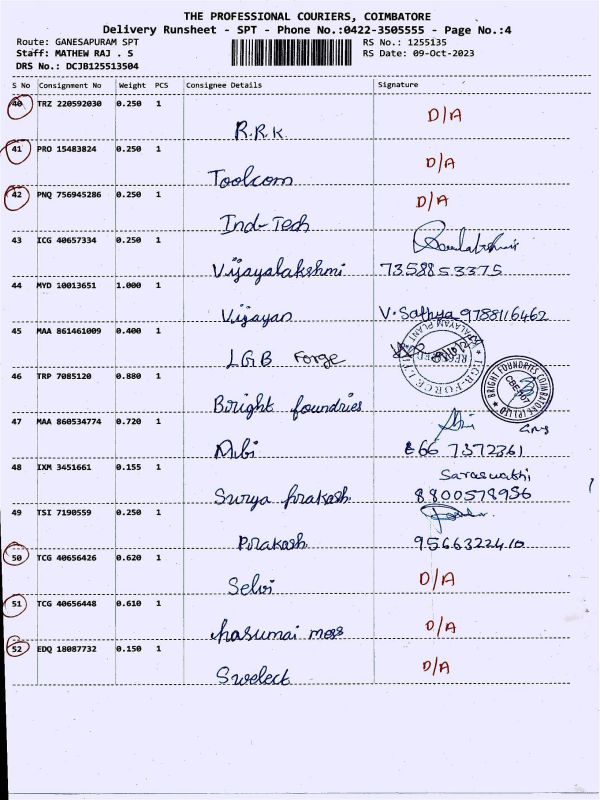 THE PROFESSIONAL COURIERS, COIMBATORE
Delivery Runsheet - SPT - Phone No.:0422-3505555 - Page No.:4
Route: GANESAPURAM SPT RS No.: 1255135
Staff: MATHEW RAJ . S RS Date: 09-Oct-2023
DRS No.: DCJB125513504
S No Consignment No Weight PCS Consignee Details Signature
40 TRZ 220592030 0.250 1 D/A
R.R.K
41 PRO 15483824 0.250 1 D/A
Toolcom
42 PNQ 756945286 0.250 1 D/A
Ind-Tech
43 ICG 40657334 0.250 1
Vijayalakshmi 7358853375
44 MYD 10013651 1.000 1
Vijayan V. Sathya 9788116462
45 MAA 861461009 0.400 1
LGB Forge
46 TRP 7085120 0.880 1 BRIGHT FOUNDRIES COIMBATORE (P) LTD
Bright foundries
47 MAA 860534774 0.720 1
Abi 866 7372361
48 IXM 3451661 0.155 1 Saraswathi
Surya prakash 8800578956
49 TSI 7190559 0.250 1
Prakash 9566322410
50 TCG 40656426 0.620 1 D/A
Selvi
51 TCG 40656448 0.610 1 D/A
hasumai mess
52 EDQ 18087732 0.150 1 D/A
Swelect